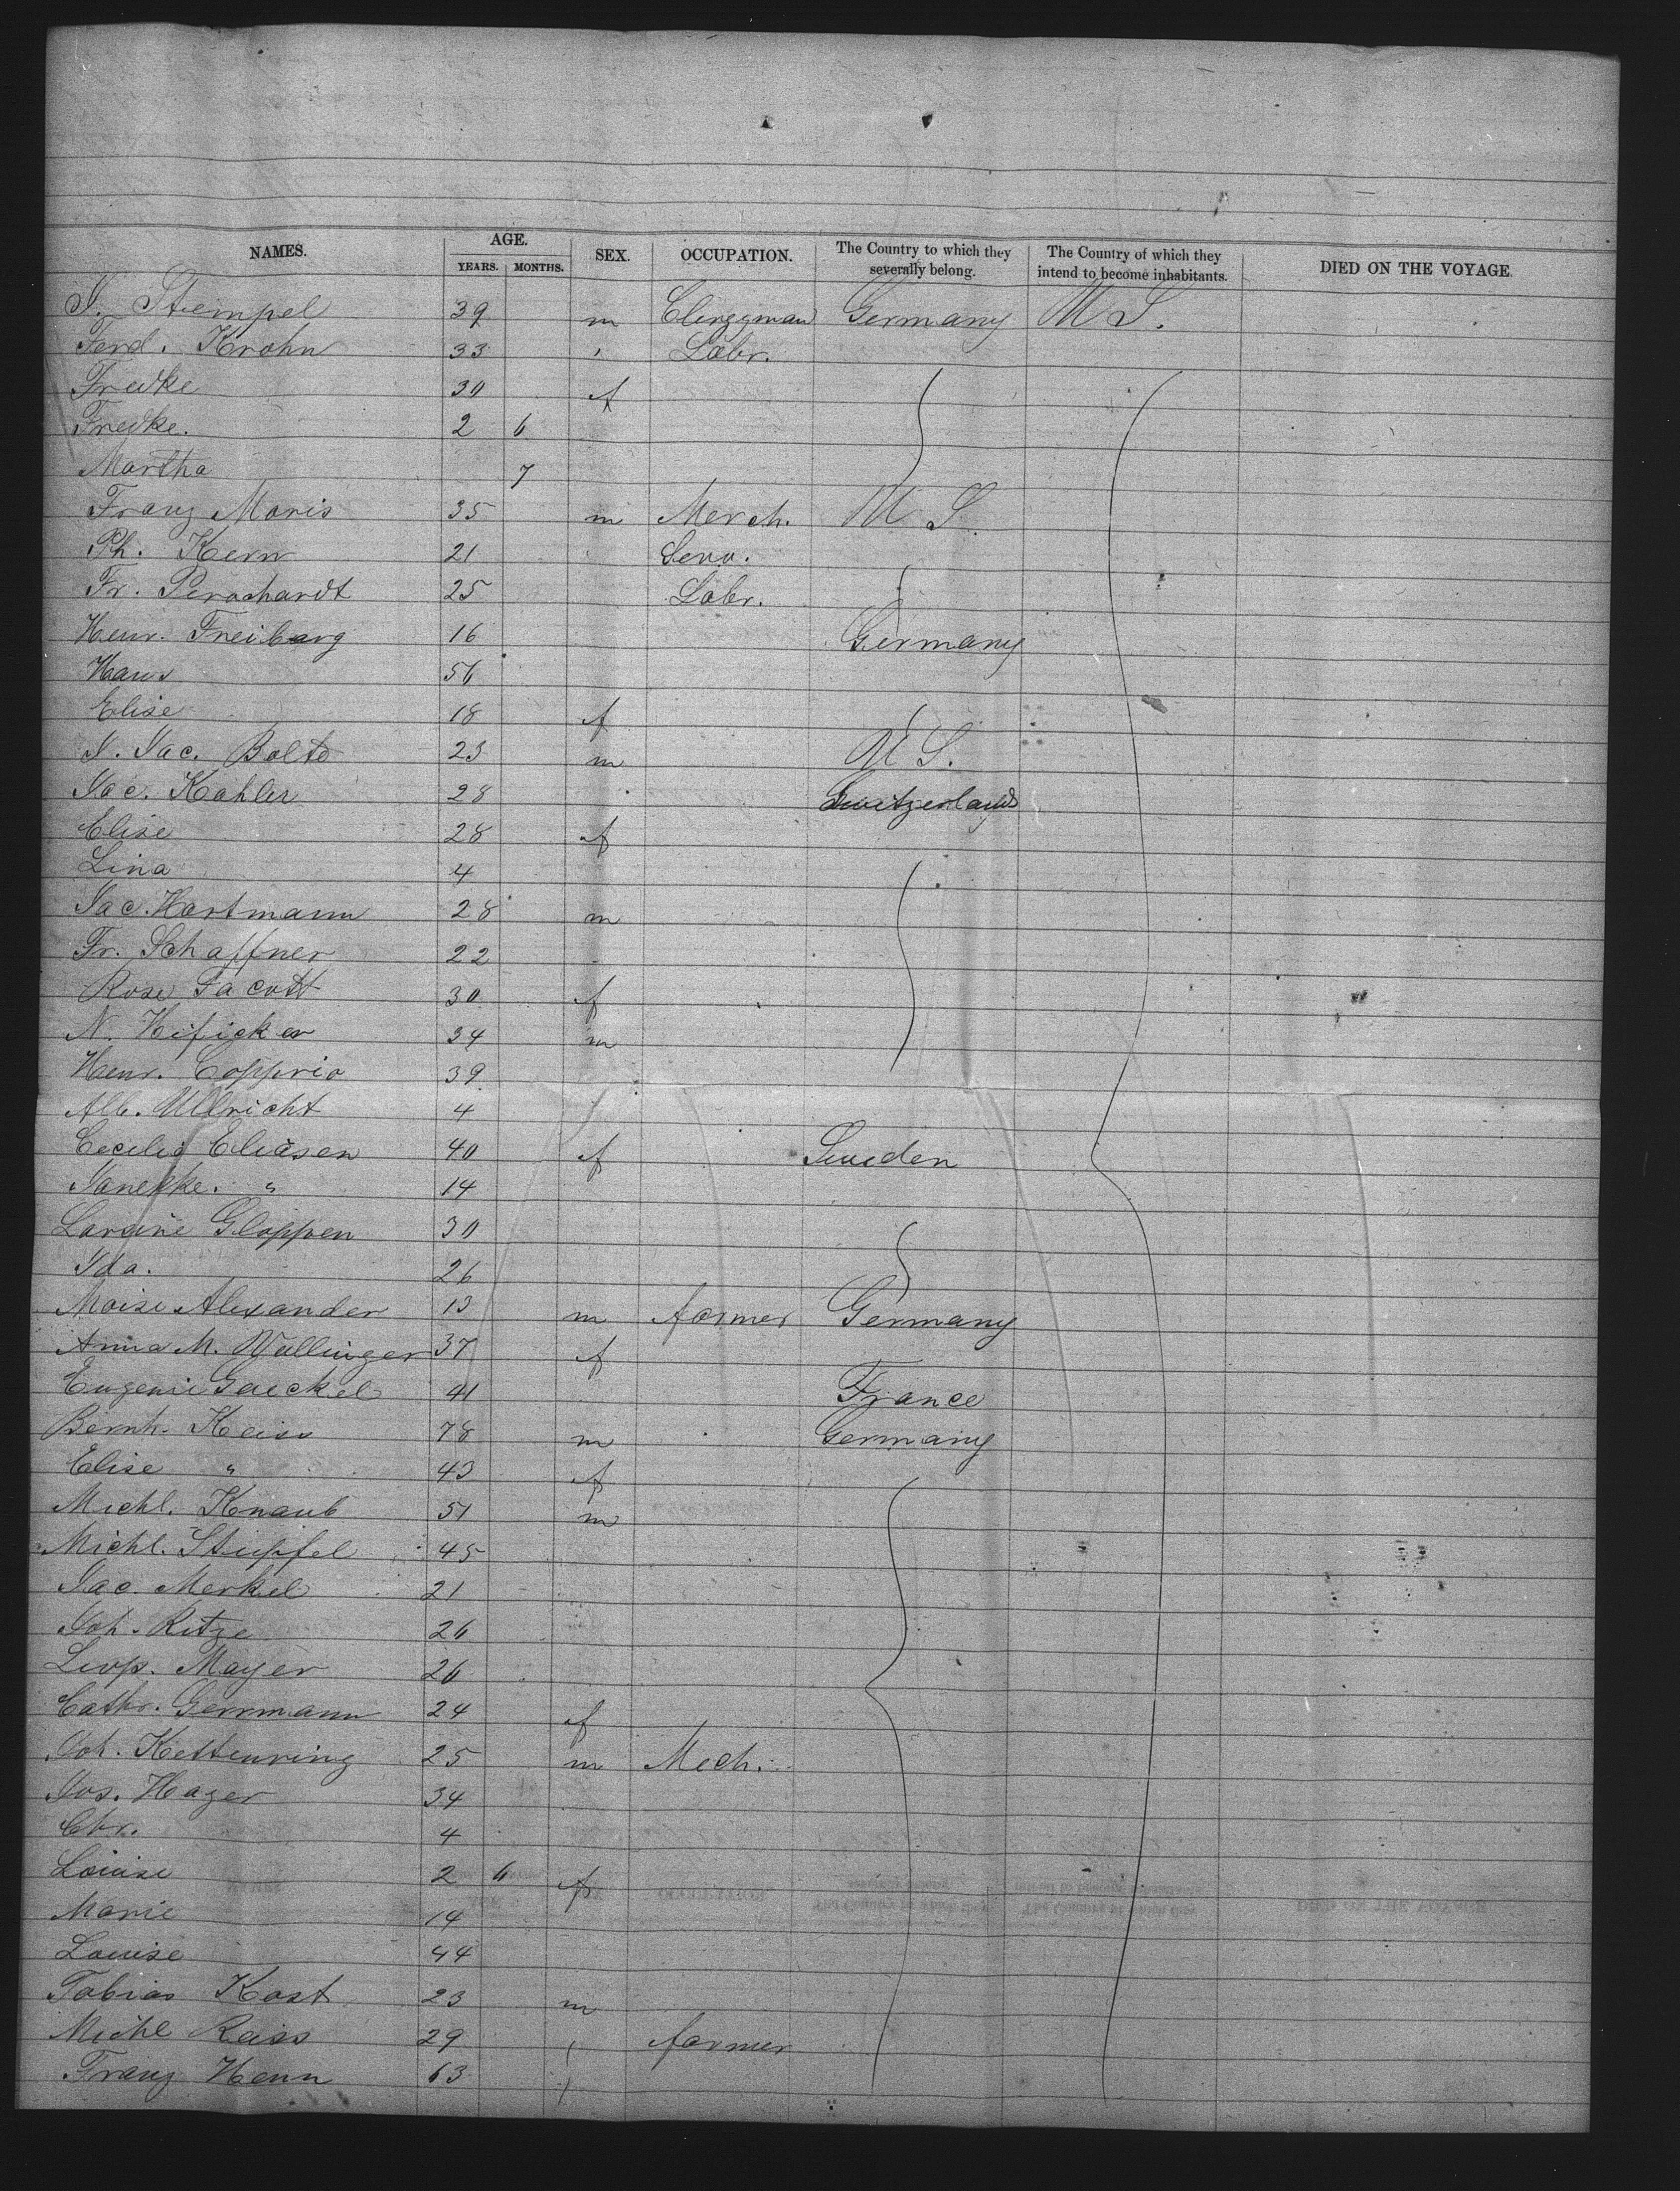 NAMES. AGE. SEX. OCCUPATION. The Country to which they severally belong. The Country of which they intend to become inhabitants. DIED ON THE VOYAGE.
YEARS. MONTHS.
J. Stempel 39 m Clergyman Germany U S.
Ferd. Krohn 33 " Labr.
Fredke 30 f
Fredke. 2 6
Martha 7
Franz Maris 35 m Merch. U S
Ph. Kern 21 Serv.
Fr. 25 Labr.
Henr. Freibarg 16 Germany
Hans 56
Elise 18 f
J. Jac. Bolte 23 m U S.
Jac. Kahler 28 Switzerland
Elise 28 f
Lina 4
Jac. Hartmann 28 m
Fr. Schaffner 22
Rose 30 f
N. Hificker 34 m
Henr. 39
Alb. Ullricht 4
Cecilia Eliasen 40 f Sweden
14
Gloppen 30
Ida. 26
Moise Alexander 13 m farmer Germany
Anna M. Wullinger 37 f
Eugenie Gaeckel 41 France
Bernh. Keiss 78 m Germany
Elise " 43 f
Michl. Knaub 51 m
Michl. Stupfel 45
Jac. Merkel 21
Joh. Ritze 26
Leop. Mayer 26
Cathr. Germann 24 f
Joh. Kettenring 25 m Mech.
Jos. Hager 34
Chr. 4
Louise 2 6 f
Marie 14
Louise 44
Tobias Kast 23 m
Michl Reiss 29 " farmer
Franz Henn 63 "